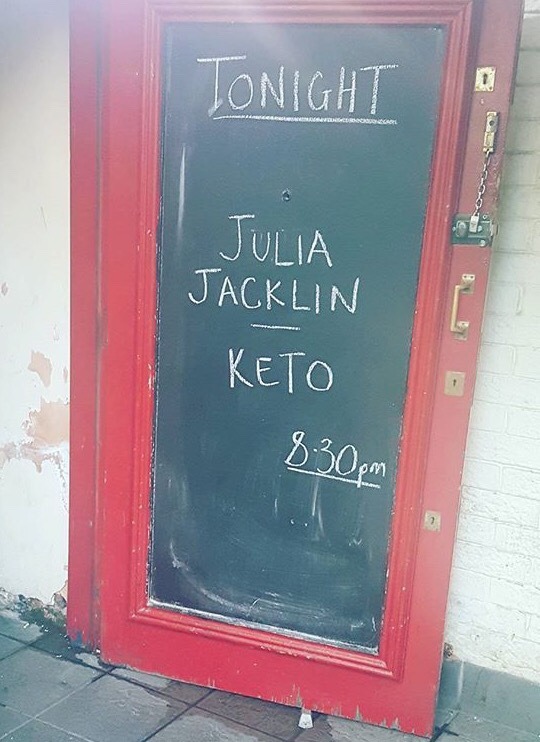 TONIGHT
JULIA
JACKLIN
KETO
8.30pm